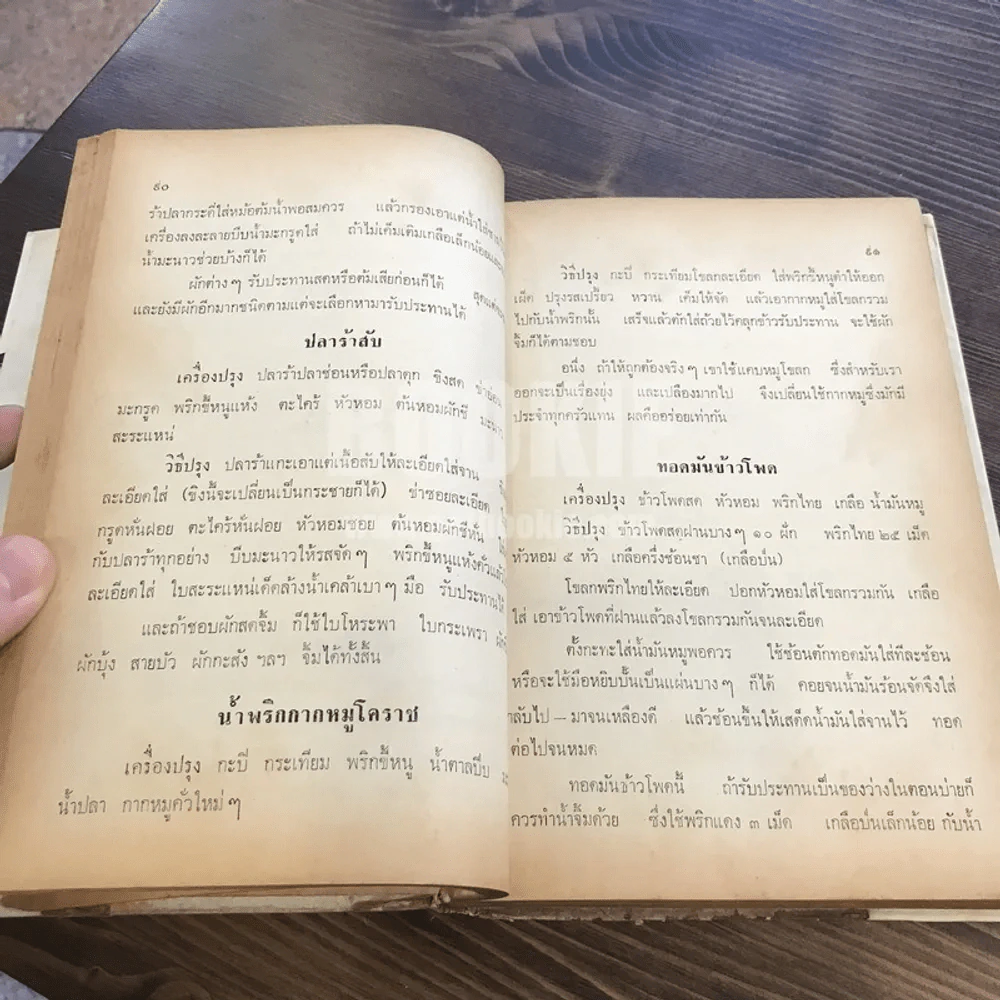 ๙๐
ร้าปลากระดี่ใส่หม้อต้มน้ำพอสมควร แล้วกรองเอาแต่น้ำใส่
เครื่องลงละลายบีบน้ำมะกรูดใส่ ถ้าไม่เค็มเติมเกลือเล็กน้อย
น้ำมะนาวช่วยบ้างก็ได้
ผักต่างๆ รับประทานสดหรือต้มเสียก่อนก็ได้
และยังมีผักอีกมากชนิดตามแต่จะเลือกหามารับประทานได้
ปลาร้าสับ
เครื่องปรุง ปลาร้าปลาช่อนหรือปลาดุก ขิงสด
มะกรูด พริกขี้หนูแห้ง ตะไคร้ หัวหอม ต้นหอมผักชี
สะระแหน่
วิธีปรุง ปลาร้าแกะเอาแต่เนื้อสับให้ละเอียดใส่จาน
ละเอียดใส่ (ขิงนี้จะเปลี่ยนเป็นกระชายก็ได้) ข่าซอยละเอียด
กรูดหั่นฝอย ตะไคร้หั่นฝอย หัวหอมซอย ต้นหอมผักชีหั่น
กับปลาร้าทุกอย่าง บีบมะนาวให้รสจัดๆ พริกขี้หนูแห้งคั่วแล้ว
ละเอียดใส่ ใบสะระแหน่เด็ดล้างน้ำเคล้าเบาๆ มือ รับประทานได้
และถ้าชอบผักสดจิ้ม ก็ใช้ใบโหระพา ใบกระเพรา
ผักบุ้ง สายบัว ผักกะสัง ฯลฯ จิ้มได้ทั้งสิ้น
น้ำพริกกากหมูโคราช
เครื่องปรุง กะปิ กระเทียม พริกขี้หนู น้ำตาลปีบ
น้ำปลา กากหมูคั่วใหม่ๆ
๙๑
วิธีปรุง กะปิ กระเทียมโขลกละเอียด ใส่พริกขี้หนูตำให้ออก
เผ็ด ปรุงรสเปรี้ยว หวาน เค็มให้จัด แล้วเอากากหมูใส่โขลกรวม
ไปกับน้ำพริกนั้น เสร็จแล้วตักใส่ถ้วยไว้คลุกข้าวรับประทาน จะใช้ผัก
จิ้มก็ได้ตามชอบ
อนึ่ง ถ้าให้ถูกต้องจริงๆ เขาใช้แคบหมูโขลก ซึ่งสำหรับเรา
ออกจะเป็นเรื่องยุ่ง และเปลืองมากไป จึงเปลี่ยนใช้กากหมูซึ่งมักมี
ประจำทุกครัวแทน ผลคืออร่อยเท่ากัน
ทอดมันข้าวโพด
เครื่องปรุง ข้าวโพดสด หัวหอม พริกไทย เกลือ น้ำมันหมู
วิธีปรุง ข้าวโพดสดฝานบางๆ ๑๐ ฝัก พริกไทย ๒๕ เม็ด
หัวหอม ๕ หัว เกลือครึ่งช้อนชา (เกลือป่น)
โขลกพริกไทยให้ละเอียด ปอกหัวหอมใส่โขลกรวมกัน เกลือ
ใส่ เอาข้าวโพดที่ฝานแล้วลงโขลกรวมกันจนละเอียด
ตั้งกะทะใส่น้ำมันหมูพอควร ใช้ช้อนตักทอดมันใส่ทีละช้อน
หรือจะใช้มือหยิบปั้นเป็นแผ่นบางๆ ก็ได้ คอยจนน้ำมันร้อนจัดจึงใส่
กลับไป—มาจนเหลืองดี แล้วช้อนขึ้นให้เสด็ดน้ำมันใส่จานไว้ ทอด
ต่อไปจนหมด
ทอดมันข้าวโพดนี้ ถ้ารับประทานเป็นของว่างในตอนบ่ายก็
ควรทำน้ำจิ้มด้วย ซึ่งใช้พริกแดง ๓ เม็ด เกลือป่นเล็กน้อย กับน้ำ